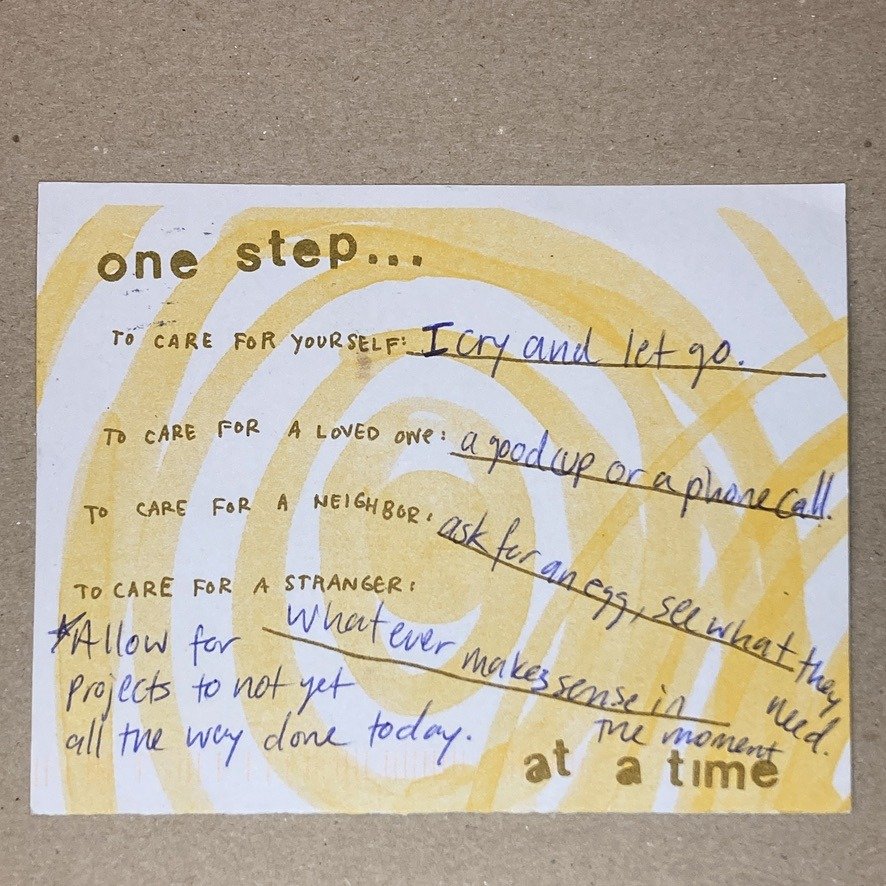 one step...
TO CARE FOR YOURSELF: I cry and let go.
TO CARE FOR A LOVED ONE: a good cup or a phone call.
TO CARE FOR A NEIGHBOR: ask for an egg, see what they need.
TO CARE FOR A STRANGER:
whatever makes sense in the moment
*Allow for
projects to not yet
all the way done today.
at a time